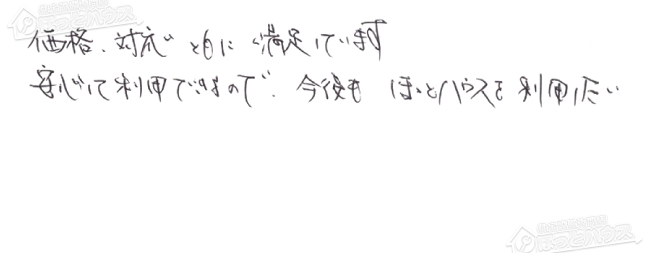 価格、対応ともに満足しています
安心して利用できるので、今後もほっとハウスを利用したい
ほっとハウス